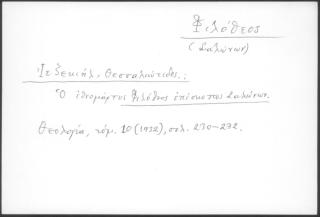 Φιλόθεος
(Σαλώνων)
Ἰεζεκιήλ, Θεσσαλιώτιδος.:
Ὁ ἐθνομάρτυς Φιλόθεος ἐπίσκοπος Σαλώνων.
Θεολογία, τόμ. 10 (1932), σελ. 270-272.